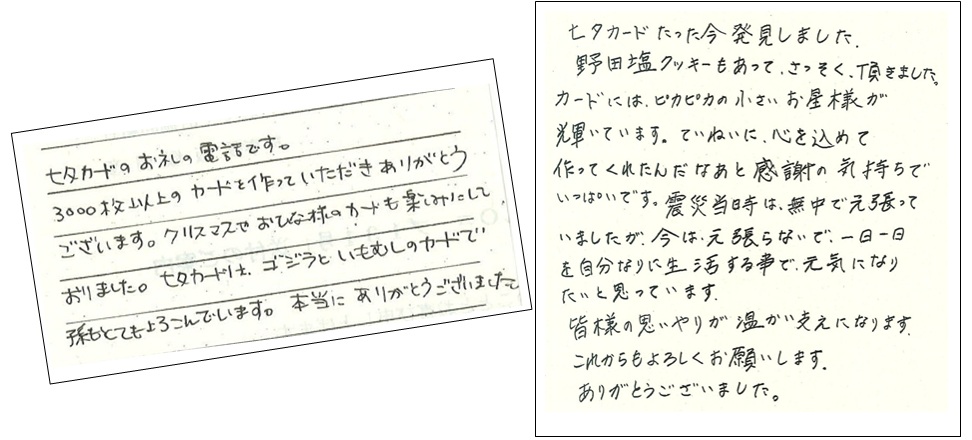 七夕カードのお礼の電話です。
3000枚以上のカードを作っていただきありがとう
ございます。クリスマスやおひな様のカードも楽しみにして
おりました。七夕カードは、ゴジラといもむしのカードで
孫もとてもよろこんでいます。本当にありがとうございましたと
七夕カードたった今発見しました。
野田塩クッキーもあって、さっそく、頂きました。
カードには、ピカピカの小さいお星様が
輝いています。ていねいに、心を込めて
作ってくれたんだなあと感謝の気持ちで
いっぱいです。震災当日時は、無中で元張って
いましたが、今は、元張らないで、一日一日
を自分なりに生活する事で、元気になり
たいと思っています。
皆様の思いやりが温かい支えになります。
これからもよろしくお願いします。
ありがとうございました。